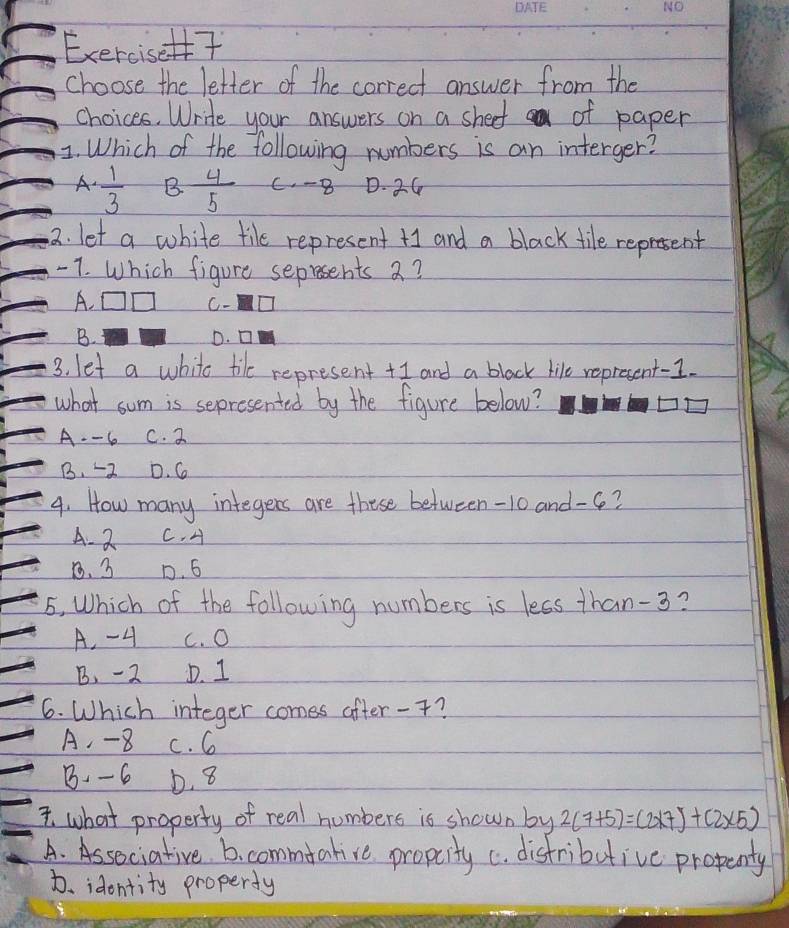 DATE NO
Exercise#7
Choose the letter of the correct answer from the
choices. Write your answers on a sheet of paper
1. Which of the following numbers is an interger?
A. 1/3 B. 4/5 C. -8 D. 26
2. let a white tile represent +1 and a black tile represent
-1. Which figure sepresents 2?
A. □□ C. ■□
B. ■■ D. □■
3. let a white tile represent +1 and a black tile represent -1.
what sum is sepresented by the figure below? ■■■■□□
A. -6 C. 2
B. -2 D. 6
4. How many integers are these between -10 and -6?
A. 2 C. 4
B. 3 D. 6
5. Which of the following numbers is less than -3?
A. -4 C. 0
B. -2 D. 1
6. Which integer comes after -7?
A. -8 C. 6
B. -6 D. 8
7. what property of real numbers is shown by 2(7+5)=(2x7)+(2x5)
A. Associative b. commtative propcity c. distributive propenty
D. identity property